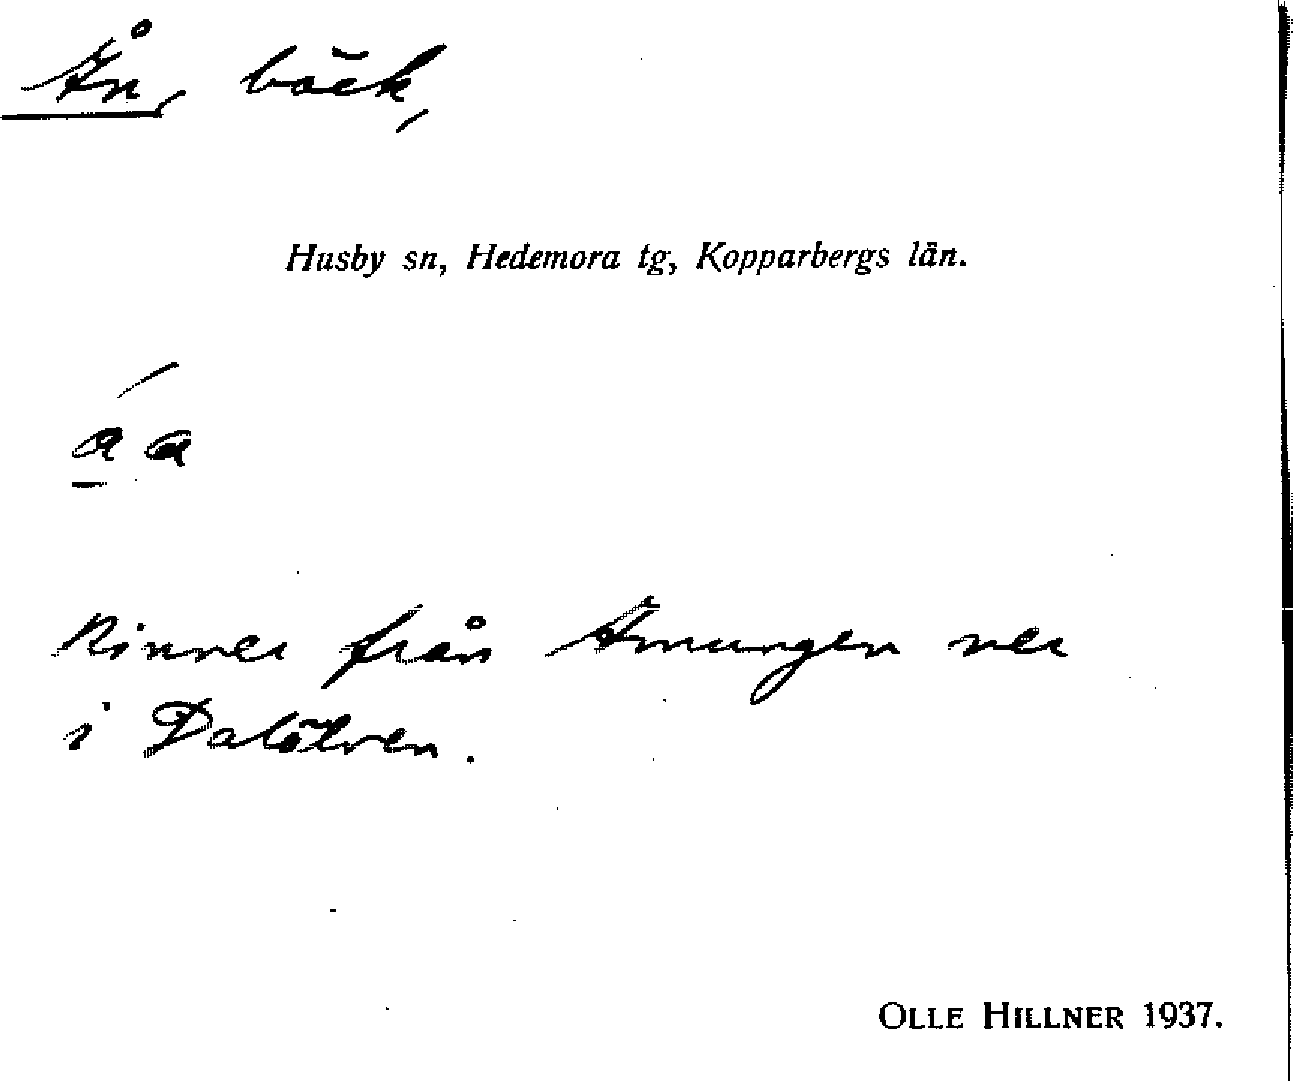 Ån, bäck,
Husby sn, Hedemora tg, Kopparbergs län.
a a
Rinner från Amungen ner
i Dalälven.
OLLE HILLNER 1937.